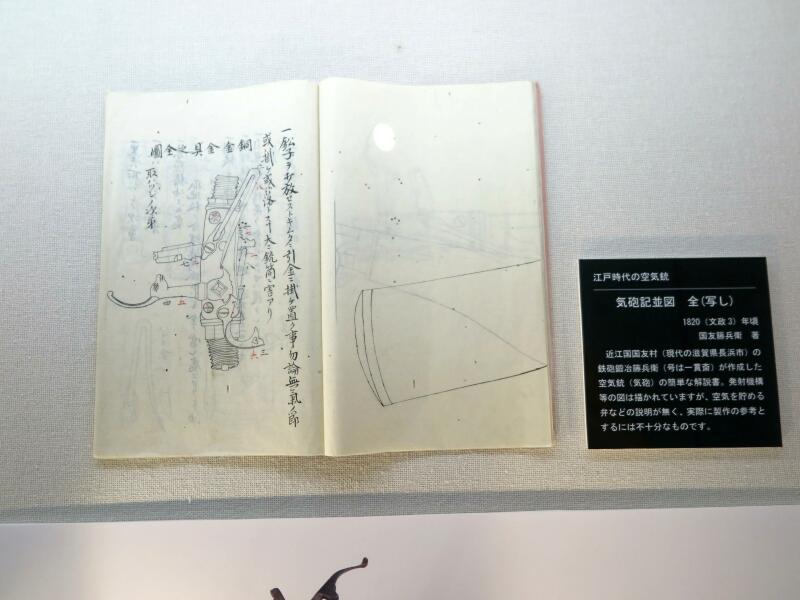 一鉛子ヲ打放セストキムタヘ引金ニ掛ケ置ク事勿論無氣ノ節
或ハ掛ケ或ハ落
銃筒ニ害アリ
銅金金具之全圖
取ハツシノ次第
江戸時代の空気銃
気砲記並図 全(写し)
1820(文政3)年頃
国友藤兵衛 著
近江国国友村(現代の滋賀県長浜市)の
鉄砲鍛冶藤兵衛(号は一貫斎)が作成した
空気銃(気砲)の簡単な解説書。発射機構
等の図は描かれていますが、空気を貯める
弁などの説明が無く、実際に製作の参考と
するには不十分なものです。